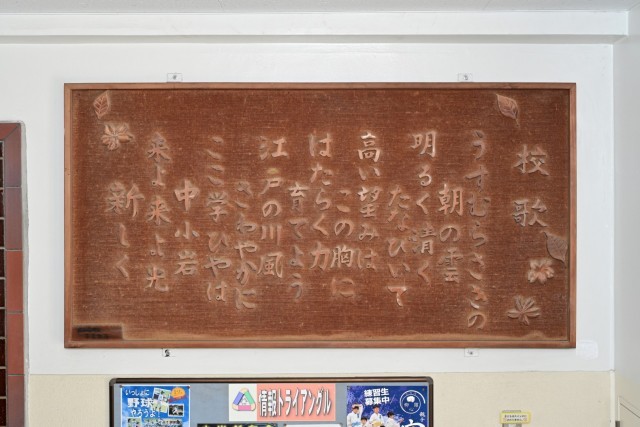 校歌
うすむらさきの
朝の雲
明るく清く
たなびいて
高い望みは
この胸に
はたらく力
育てよう
江戸の川風
さわやかに
ここ学びやは
中小岩
来よ来よ光
新しく
いっしょに
野球
やろうよ!
情報トライアングル
練習生
募集中